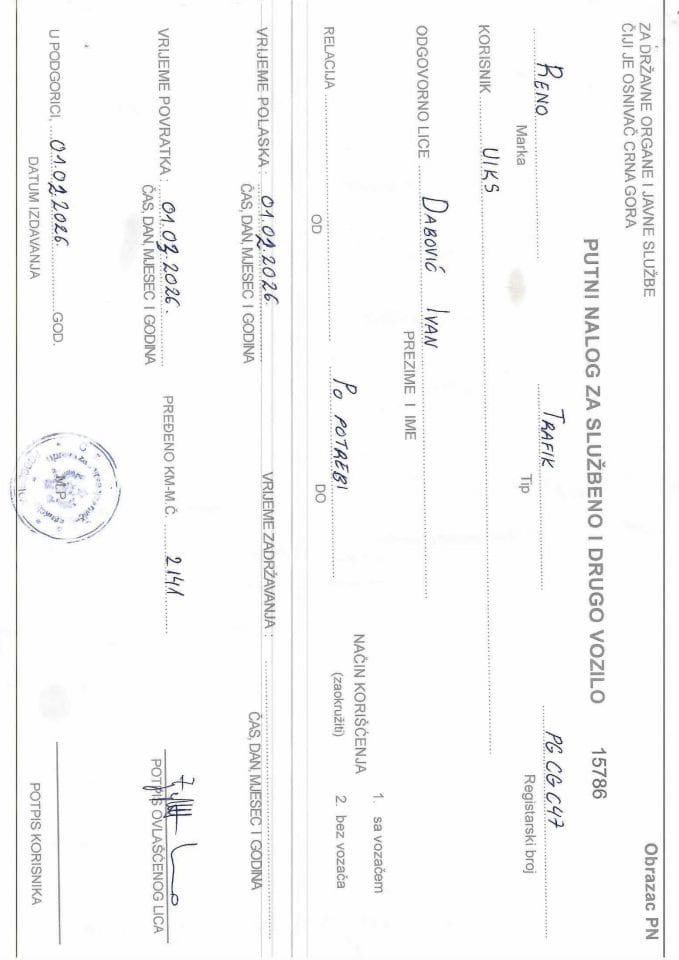 ZA DRŽAVNE ORGANE I JAVNE SLUŽBE
ČIJI JE OSNIVAČ CRNA GORA
Obrazac PN
PUTNI NALOG ZA SLUŽBENO I DRUGO VOZILO 15786
RENO TRAFIK PG CG C47
Marka Tip Registarski broj
KORISNIK UIKS
ODGOVORNO LICE DABOVIĆ IVAN
PREZIME I IME
NAČIN KORIŠĆENJA
(zaokružiti)
1. sa vozačem
2. bez vozača
RELACIJA PO POTREBI
OD DO
VRIJEME POLASKA : 01.02.2026. VRIJEME ZADRŽAVANJA :
ČAS, DAN, MJESEC I GODINA ČAS, DAN, MJESEC I GODINA
VRIJEME POVRATKA : 01.03.2026. PREĐENO KM-M.Č. 2141
ČAS, DAN, MJESEC I GODINA POTPIS OVLAŠĆENOG LICA
U PODGORICI, 01.02.2026. GOD.
DATUM IZDAVANJA M.P. POTPIS KORISNIKA